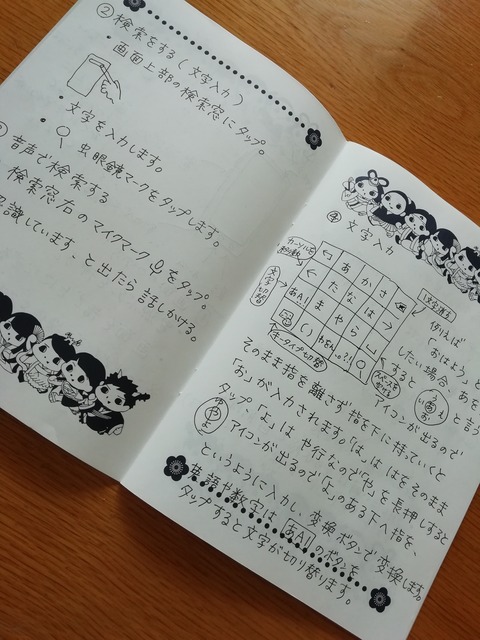 ② 検索をする(文字入力)
・画面上部の検索窓にタップ。
・文字を入力します。
・虫眼鏡マークをタップします。
音声で検索する
検索窓右のマイクマークをタップ。
認識しています、と出たら話しかける。
④ 文字入力
カーソルを
あ か さ
← た な は →
あA1 ま や ら
文字切り替
キータイプ切替
文字消去
スペースを
例えば
「おはよう」と
したい場合、あを
すると
う
い あ え
お
と言う
アイコンが出るので
そのまま指を離さず指を下に持っていくと
「お」が入力されます。「は」は はをそのまま
タップ、「よ」は や行なので「や」を長押しすると
ゆ
や
よ
アイコンが出るので「よ」のある下へ指を、
というように入力し、変換ボタンで変換します。
英語や数字は あA1 のボタンを
タップすると文字が切り替ります。